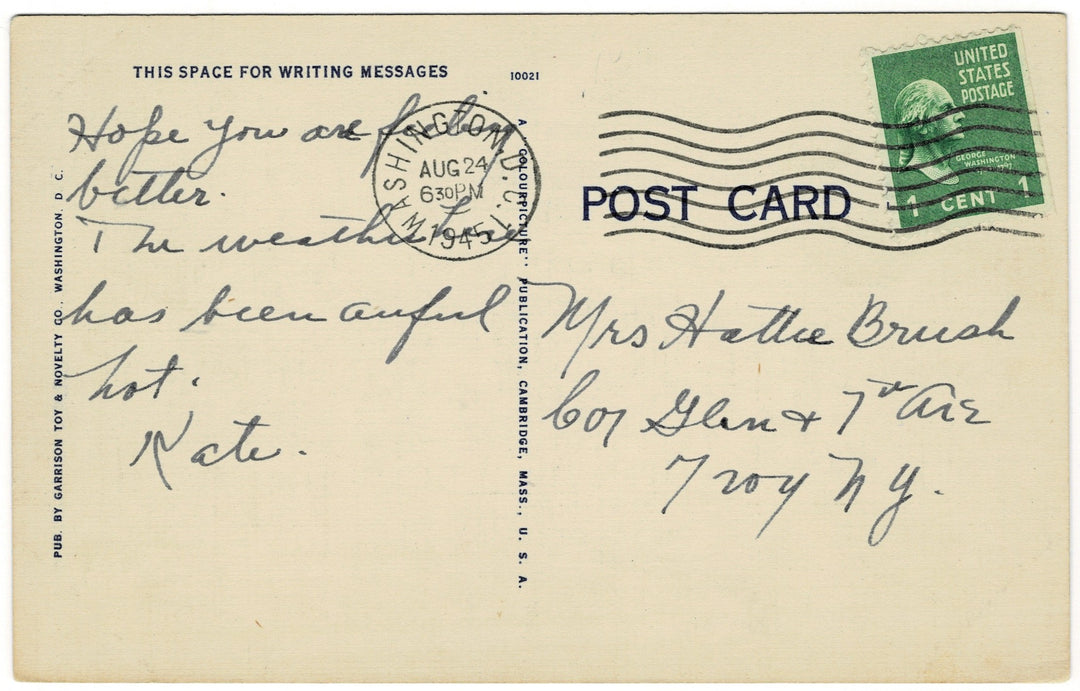 THIS SPACE FOR WRITING MESSAGES
10021
Hope you are feeling
better.
The weather here
has been awful
hot.
Kate.
PUB. BY GARRISON TOY & NOVELTY CO., WASHINGTON, D. C.
A "COLOURPICTURE" PUBLICATION, CAMBRIDGE, MASS., U. S. A.
WASHINGTON, D.C. 1
AUG 24
630PM
1945
POST CARD
UNITED
STATES
POSTAGE
GEORGE
WASHINGTON
1 CENT 1
Mrs Hattie Brush
Cor Glen & 7th Ave
Troy N Y.